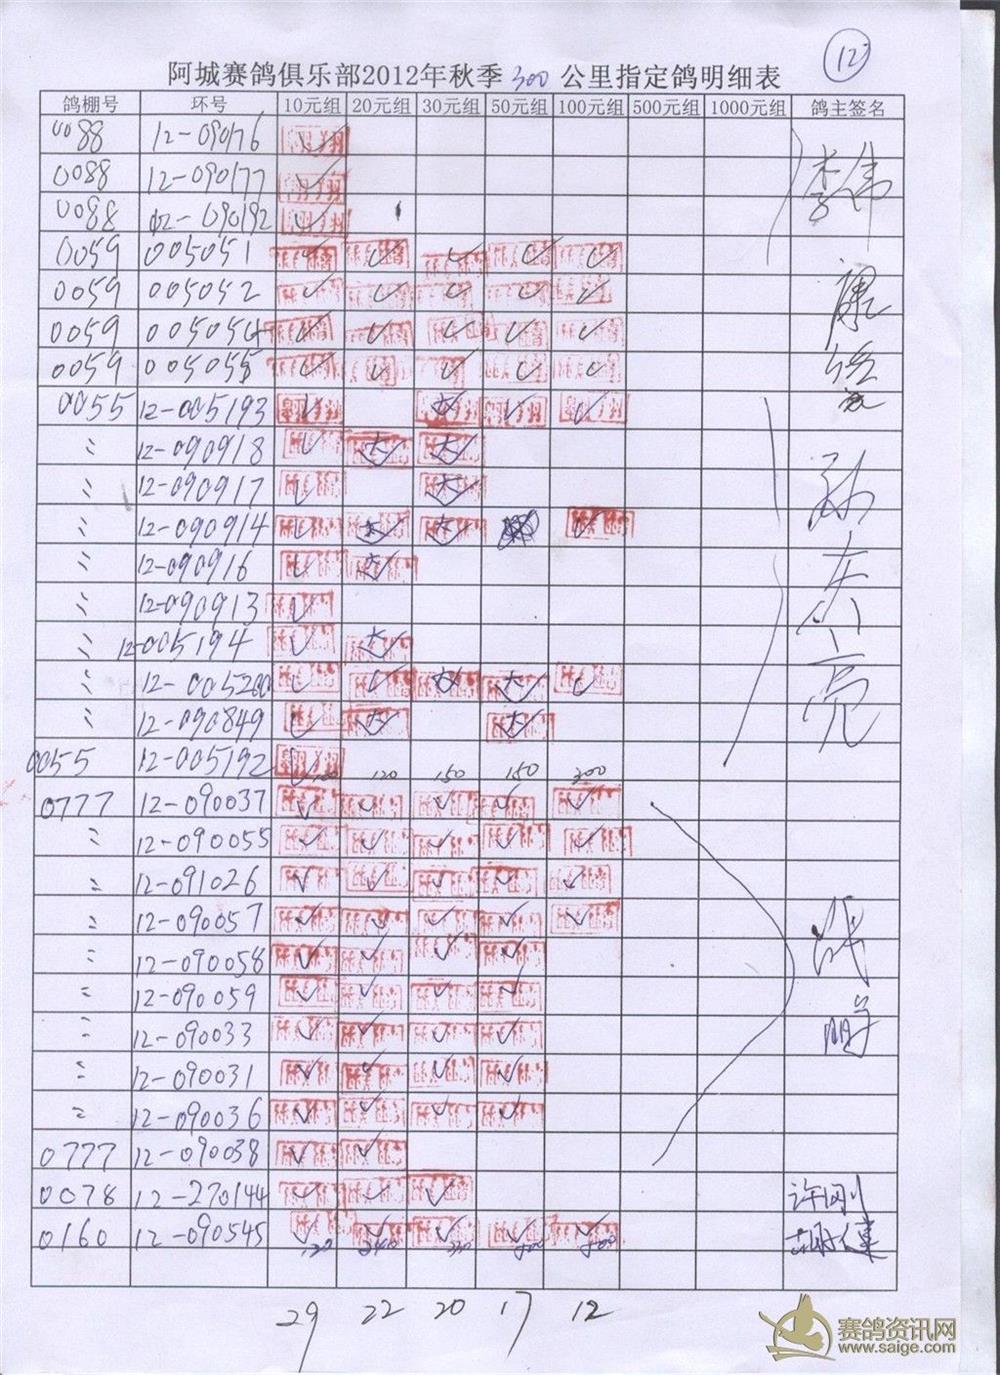 12
阿城赛鸽俱乐部2012年秋季300公里指定鸽明细表
鸽棚号 环号 10元组 20元组 30元组 50元组 100元组 500元组 1000元组 鸽主签名
0088 12-090176 ✓
0088 12-090177 ✓ 李伟
0088 12-090192 ✓
0059 005051 ✓ ✓ ✓ ✓ ✓
0059 005052 ✓ ✓ ✓ ✓ ✓
0059 005054 ✓ ✓ ✓ ✓ ✓
0059 005055 ✓ ✓ ✓ ✓ ✓
0055 12-005193 ✓ ✓ ✓ ✓
〃 12-090918 ✓ ✓ ✓
〃 12-090917 ✓ ✓
〃 12-090914 ✓ ✓ ✓ ✓
〃 12-090916 ✓ ✓
〃 12-090913 ✓
〃 12-005194 ✓ ✓
〃 12-005200 ✓ ✓ ✓ ✓ ✓
〃 12-090849 ✓ ✓ ✓
0055 12-005192 ✓
120 150 150 200
0777 12-090037 ✓ ✓ ✓ ✓ ✓
〃 12-090055 ✓ ✓ ✓ ✓ ✓
〃 12-091026 ✓ ✓ ✓ ✓ ✓
〃 12-090057 ✓ ✓ ✓ ✓ ✓
〃 12-090058 ✓ ✓ ✓ ✓
〃 12-090059 ✓ ✓ ✓ ✓
〃 12-090033 ✓ ✓ ✓ ✓
〃 12-090031 ✓ ✓ ✓ ✓
〃 12-090036 ✓ ✓ ✓ ✓
0777 12-090038 ✓ ✓
0078 12-270144 ✓ ✓ ✓ 许刚
0160 12-090545 ✓ ✓ ✓ ✓ ✓
29 22 20 17 12
赛鸽资讯网
www.saige.com